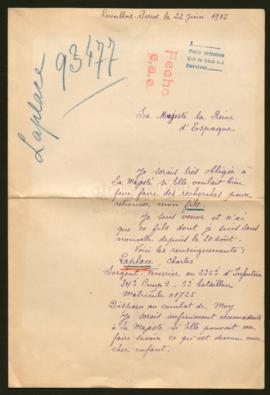 Levallois-Perret le 22 Juin 1915
Laplace
93477
Fecho
Sa Majesté la Reine
d'Espagne
Je serais très obligée à
Sa Majesté si Elle voulait bien
faire faire des recherches pour
retrouver mon fils
Je suis veuve et n'ai
que ce fils dont je suis sans
nouvelles depuis le 20 août.
Voici les renseignements:
Laplace, Charles
Sergent-Fourrier au 225e d'Infanterie
24e Compie - 3e bataillon
Matricule 01725
Disparu au combat de
Je serais infiniment reconnaissante
à Sa Majesté si Elle pouvait me
faire savoir ce qu'est devenu mon
cher enfant.